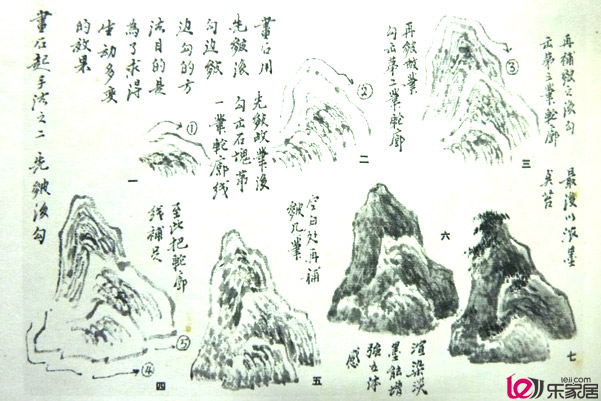 畫石起手法之二 先皴後勾
畫石用
先皴後
勾边皴
边勾的方
法目的是
為了求得
生动多变
的效果
先皴数筆後
勾出石塊第
一筆輪廓线
①
一
再皴数筆
勾出第二筆輪廓
②
二
再補皴之後勾
出第三筆輪廓
③
三
至此把輪廓
线補足
④
⑤
四
空白处再補
皴几筆
五
六
渲染淡
墨能增
強立体
感
最後以濃墨
点苔
七
lejj.com
乐家居